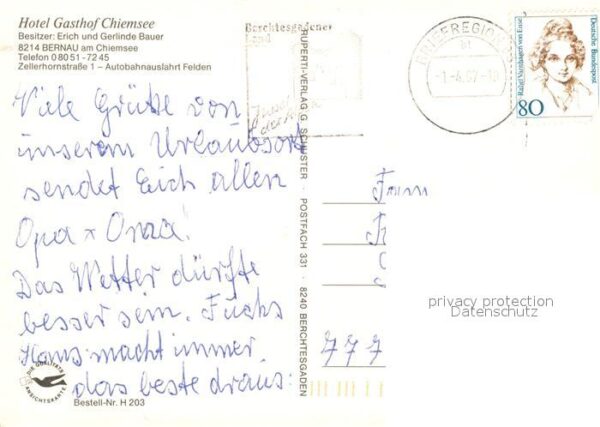 Hotel Gasthof Chiemsee
Besitzer: Erich und Gerlinde Bauer
8214 BERNAU am Chiemsee
Telefon 0 80 51 - 72 45
Zellerhornstraße 1 – Autobahnausfahrt Felden
Viele Grüße von
unserem Urlaubsort
sendet Euch allen
Opa + Oma!
Das Wetter dürfte
besser sein. Fuchs
Hans macht immer
das beste draus!
DIE QUALITÄTS
ANSICHTSKARTE
Bestell-Nr. H 203
RUPERTI-VERLAG G. SCHUSTER · POSTFACH 331 · 8240 BERCHTESGADEN
Berchtesgadener
Land
BRIEFREGION
Deutsche Bundespost
Rahel Varnhagen von Ense
80
777
privacy protection
Datenschutz